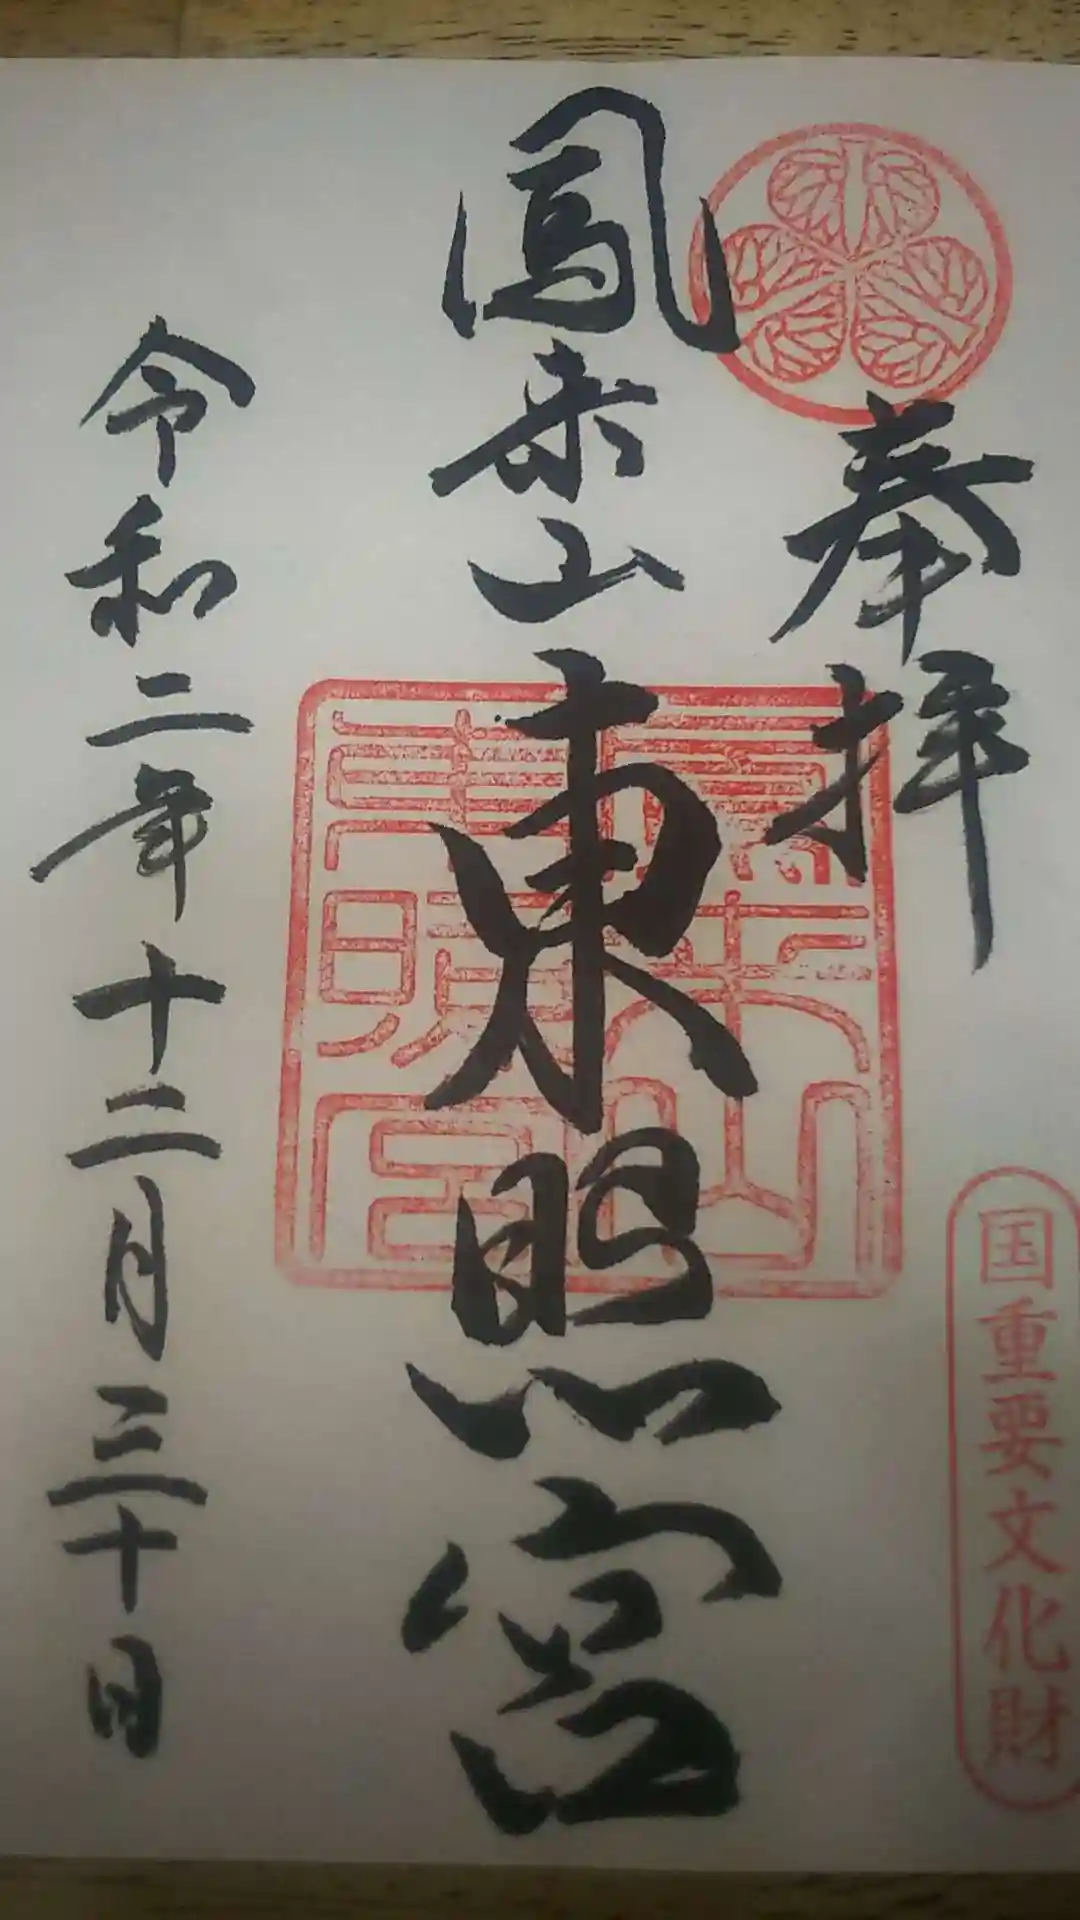 奉拝
国重要文化財
鳳来山東照宮
鳳来山
東照宮
令和二年十二月三十日